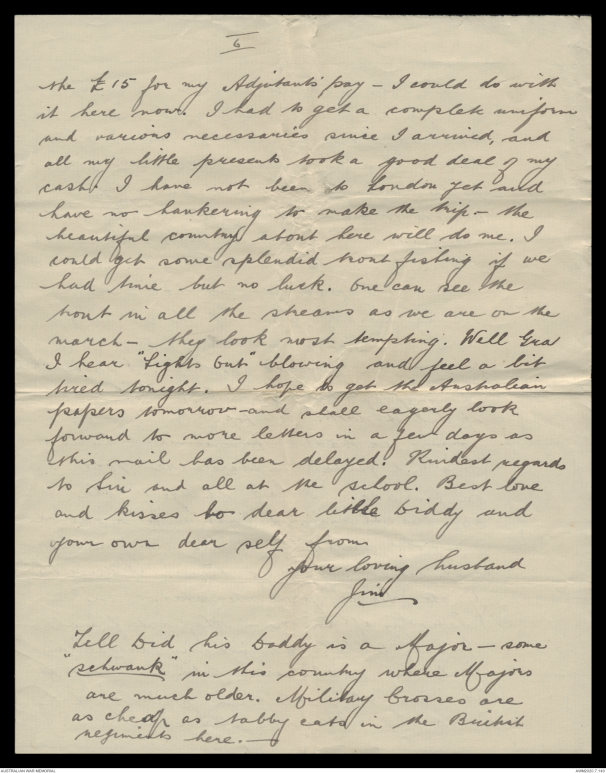 6
the £15 for my Adjutants pay - I could do with
it here now. I had to get a complete uniform
and various necessaries since I arrived, and
all my little presents took a good deal of my
cash. I have not been to London yet and
have no hankering to make the trip - the
beautiful country about here will do me. I
could get some splendid trout fishing if we
had time but no luck. One can see the
trout in all the streams as we are on the
march - they look most tempting. Well Gra
I hear "Lights Out" blowing and feel a bit
tired tonight. I hope to get the Australian
papers tomorrow and shall eagerly look
forward to more letters in a few days as
this mail has been delayed. Kindest regards
to Lin and all at the school. Best love
and kisses to dear little Diddy and
your own dear self from
your loving husband
Jim
Tell Did his Daddy is a Major - some
"schwank" in this country where Majors
are much older. Military Crosses are
as cheap as tabby cats in the British
regiments here. -
AUSTRALIAN WAR MEMORIAL